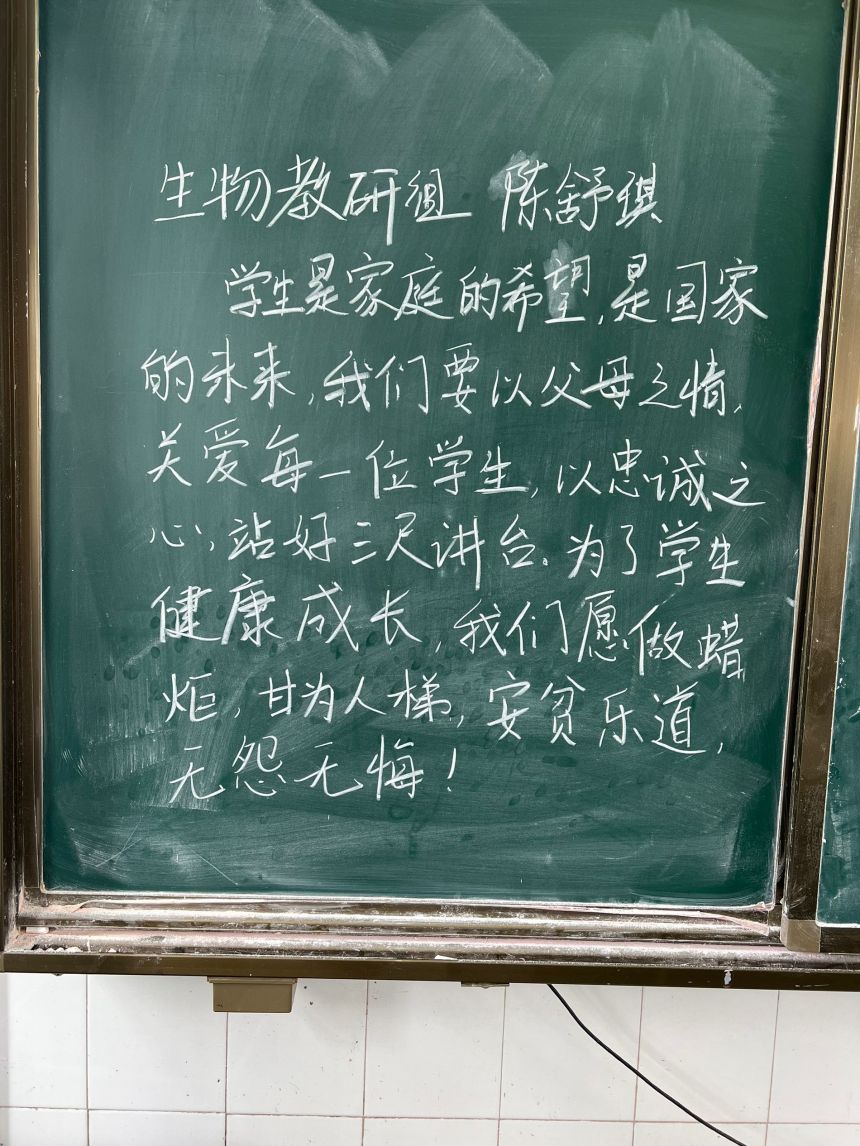 生物教研组 陈舒琪
学生是家庭的希望,是国家
的未来,我们要以父母之情,
关爱每一位学生,以忠诚之
心,站好三尺讲台。为了学生
健康成长,我们愿做蜡
炬,甘为人梯,安贫乐道,
无怨无悔!